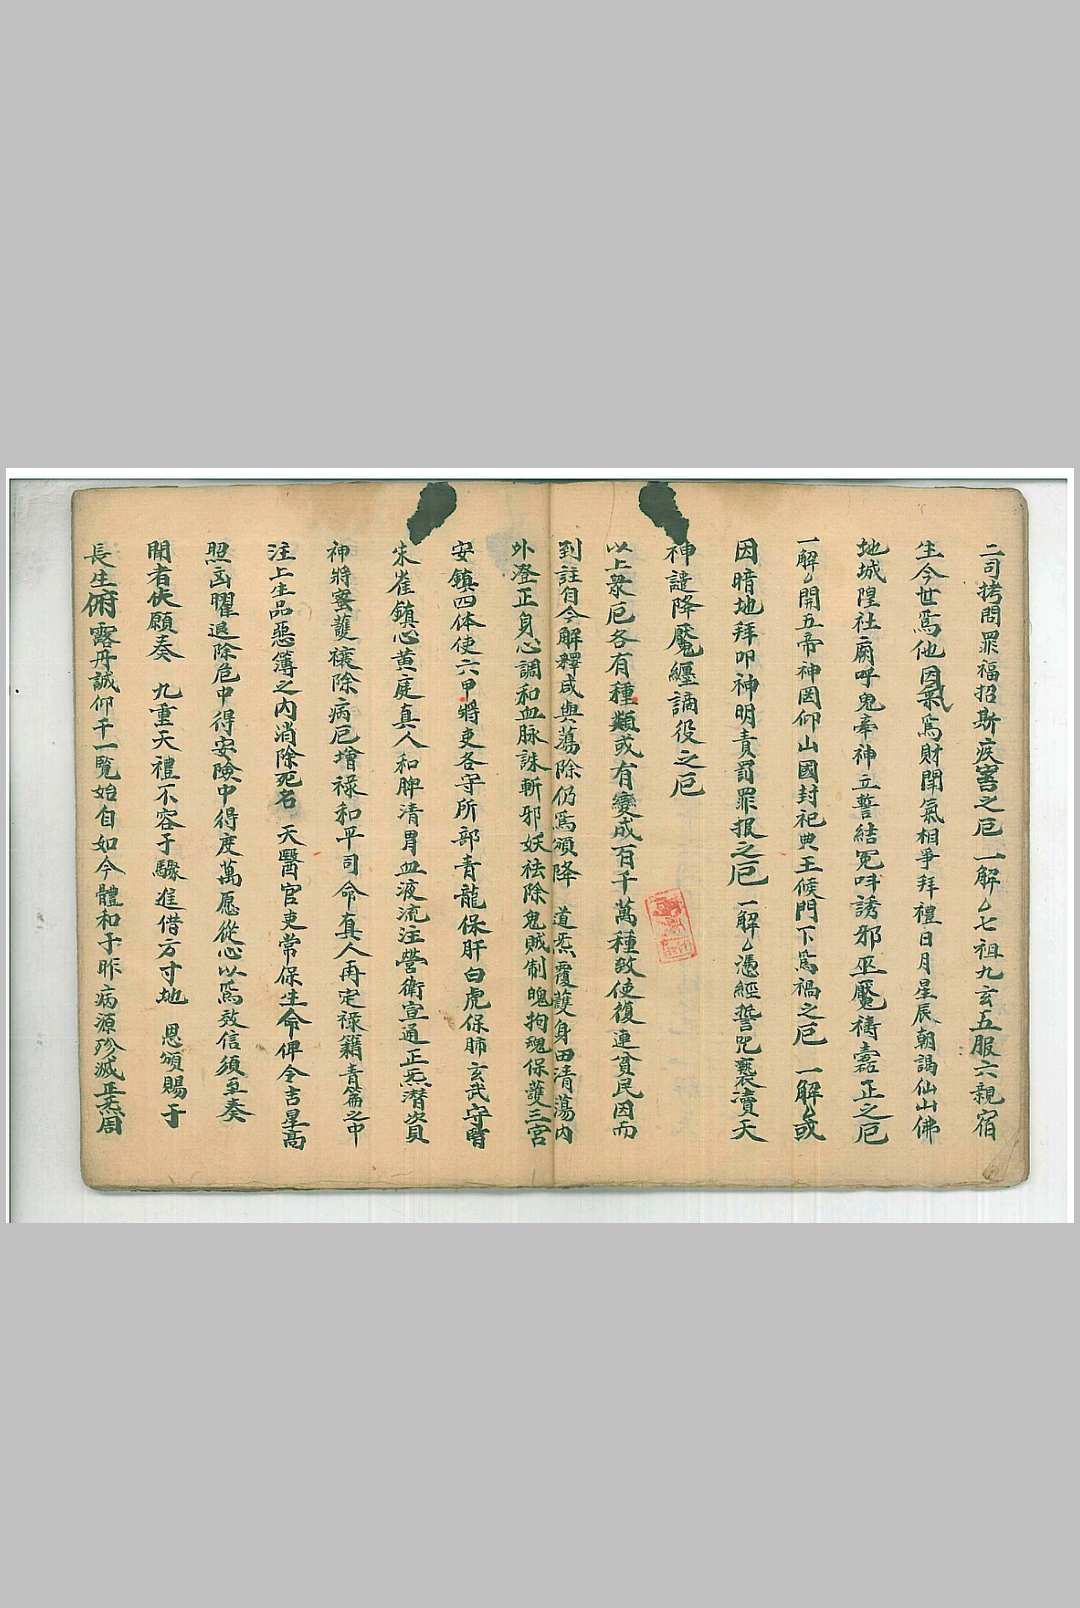 二司拷問罪福招斯疾害之厄一解乚七祖九玄五服六親宿
生今世爲他因氣爲財鬪氣相爭拜禮日月星辰朝謁仙山佛
地城隍社廟呼鬼牽神立誓結冤呌誘邪巫魘禱 正之厄
一解乚開五帝神因仰山國封祀典王候門下爲禍之厄一解乚或
因暗地拜叩神明責罰罪报之厄一解乚憑經誓咒褻瀆天
神譴降魘纏謫役之厄
以上衆厄各有種類或有變成百千萬種致使復連貧民因而
到註自今解釋咸與蕩除仍爲頒降 道炁覆護身田清蕩內
外澄正身心調和血脉誅斬邪妖祛除鬼贼制魄拘魂保護三宮
安鎮四体使六甲將吏各守所部青龍保肝白虎保肺玄武守腎
朱雀鎮心黄庭真人和脾清胃血液流注營衛宣通正炁潜資
神將蜜護禳除病厄增禄和平司命真人再定禄籍青篇之中
注上生品惡簿之内消除死名 天醫官吏常保生命俾令吉星高
照凶曜退除危中得安險中得度萬愿從心以爲效信須至奏
聞者伏願奏 九重天禮不容于驟進借方寸地 恩頒賜于
長生俯露丹誠仰干一覧始自如今體和于昨病源殄滅正炁周